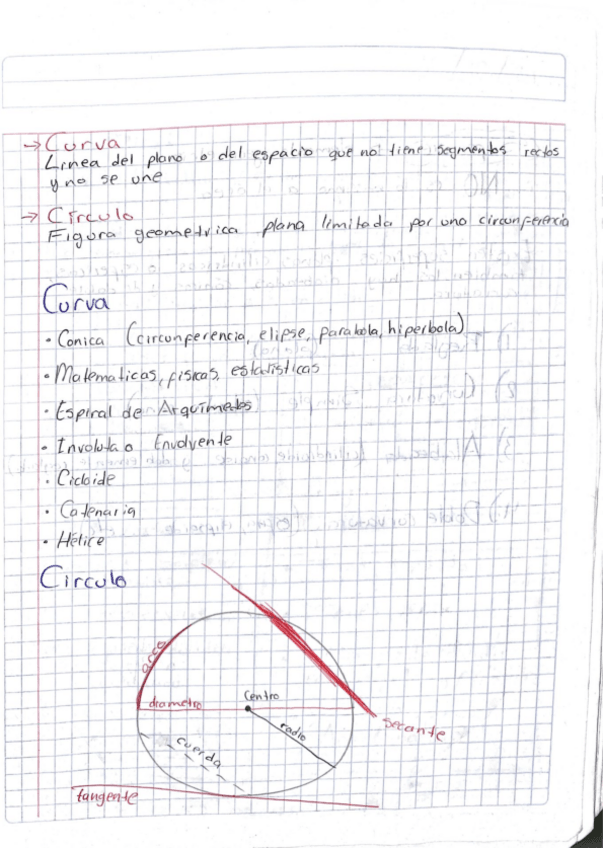 → Curva
Linea del plano o del espacio que no tiene segmentos rectos
y no se une
→ Circulo
Figura geometrica plana limitada por una circunferencia
Curva
• Conica (circunferencia, elipse, parabola, hiperbola)
• Matematicas, fisicas, estatisticas
• Espiral de Arquimedes
• Involuta o Envolvente
• Cicloide
• Catenaria
• Hélice
Circulo
arco
diametro
centro
radio
secante
cuerda
tangente